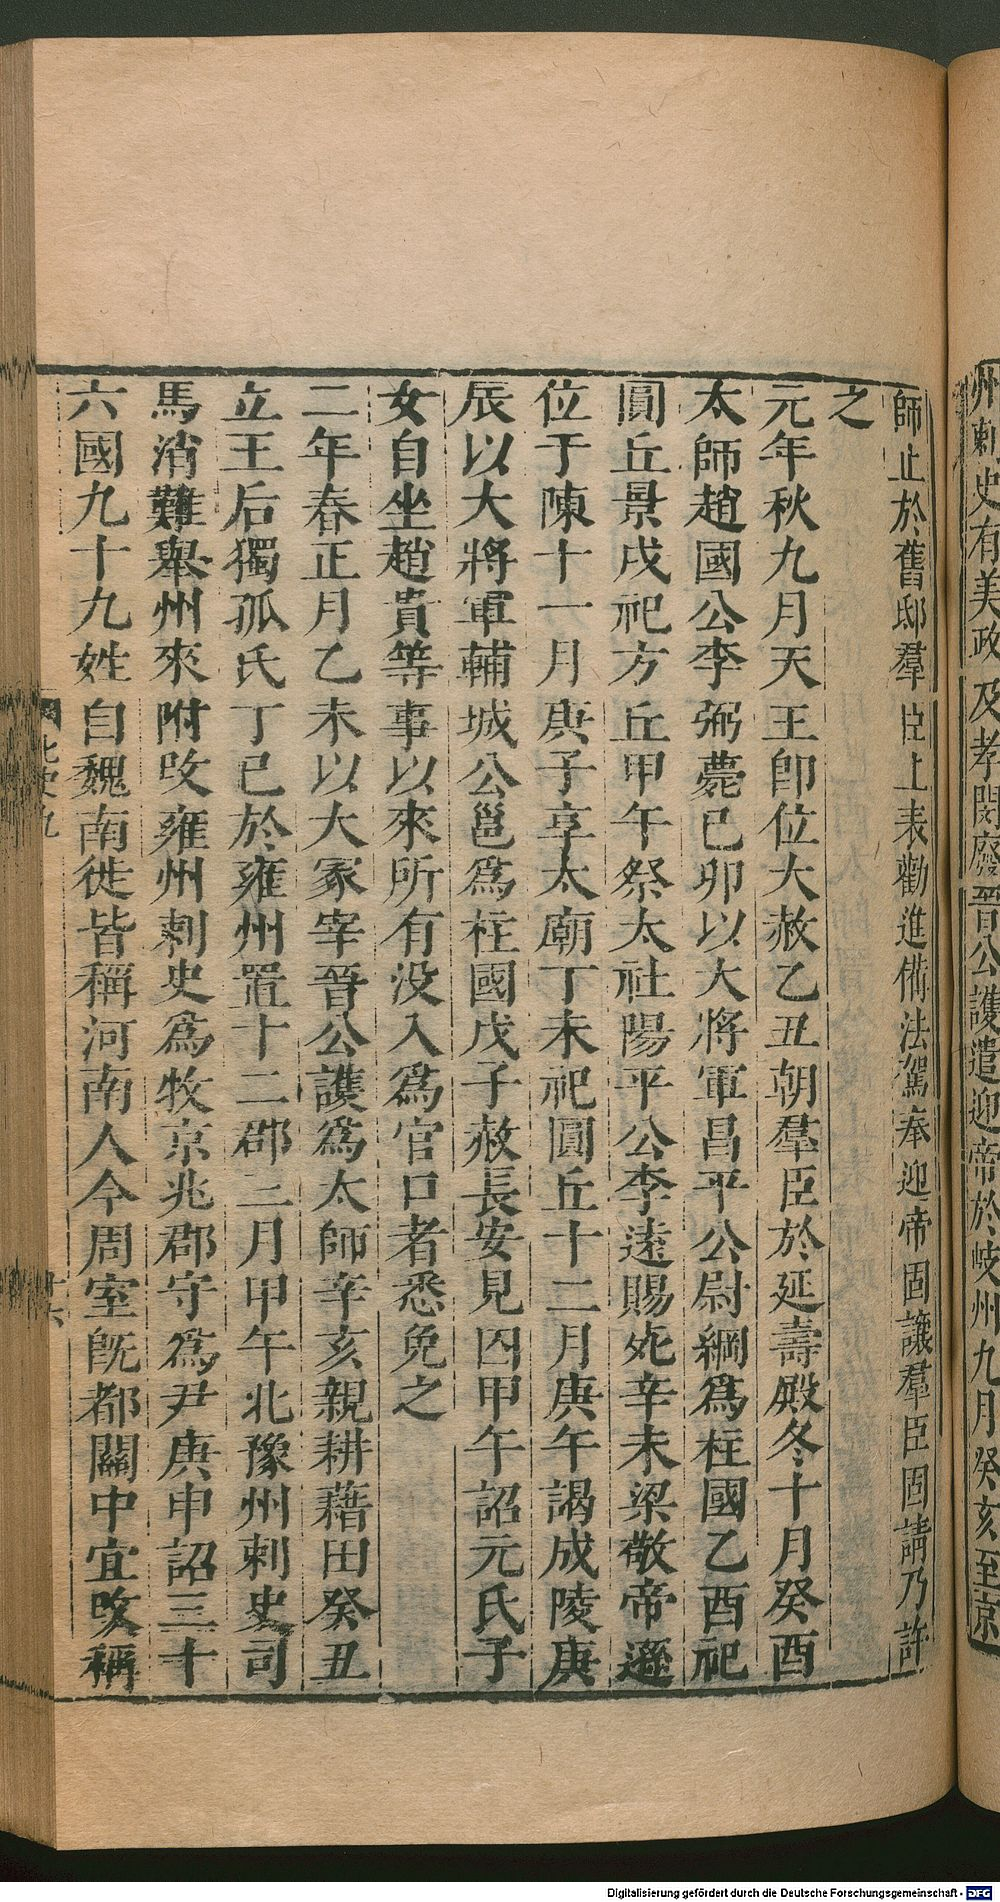 州刺史有美政及孝閔廢晉公護遣迎帝於岐州九月癸亥至京
師止於舊邸羣臣上表勸進備法駕奉迎帝固讓羣臣固請乃許
之
元年秋九月天王卽位大赦乙丑朝羣臣於延壽殿冬十月癸酉
太師趙國公李弼薨已卯以大將軍昌平公尉綱爲柱國乙酉祀
圓丘景戌祀方丘甲午祭太社陽平公李遠賜死辛未梁敬帝遜
位于陳十一月庚子享太廟丁未祀圓丘十二月庚午謁成陵庚
辰以大將軍輔城公邕爲柱國戊子赦長安見囚甲午詔元氏子
女自坐趙貴等事以來所有没入爲官口者悉免之
二年春正月乙未以大冢宰晉公護爲太師辛亥親耕藉田癸丑
立王后獨孤氏丁巳於雍州置十二郡三月甲午北豫州刺史司
馬消難舉州來附改雍州刺史爲牧京兆郡守爲尹庚申詔三十
六國九十九姓自魏南徙皆稱河南人今周室旣都關中宜改稱
北史九
十六
Digitalisierung gefördert durch die Deutsche Forschungsgemeinschaft - DFG